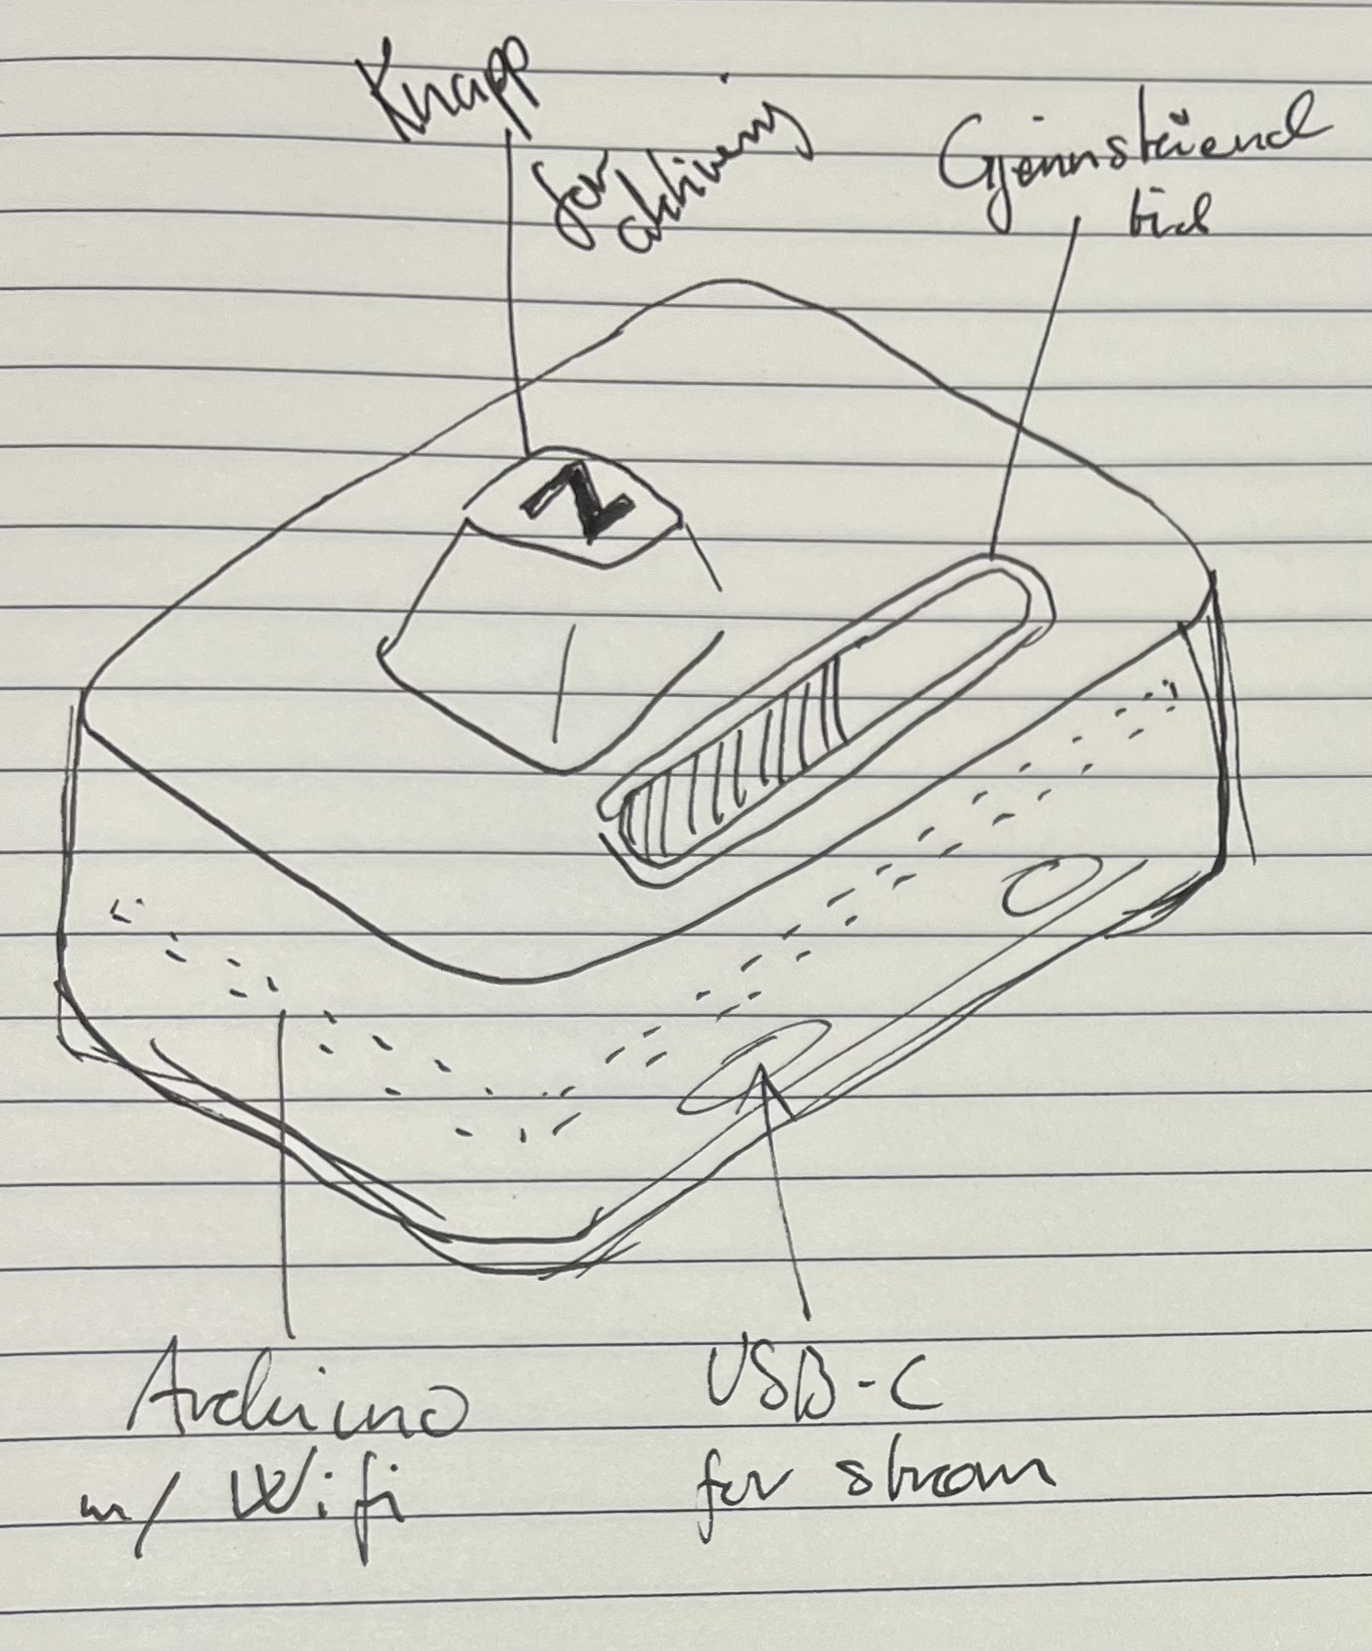 Knapp
for
aktivering
Gjennstående
tid
Z
Arduino
m/ Wifi
USB-C
for strøm